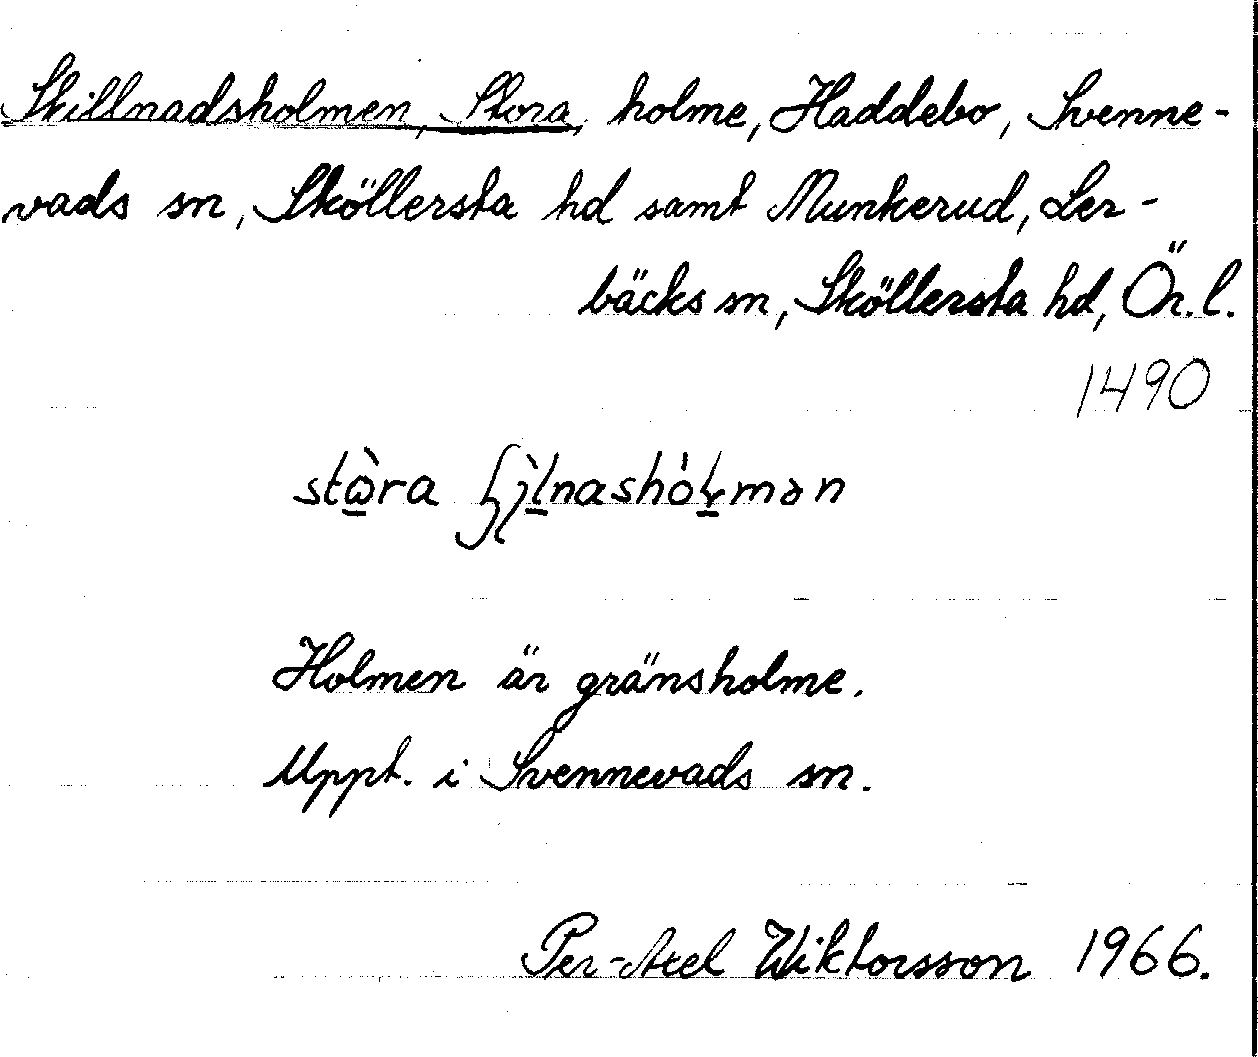 Skillnadsholmen, Stora, holme, Haddebo, Svenne-
vads sn, Sköllersta hd samt Munkerud, Ler-
bäcks sn, Sköllersta hd, Ör. l.
1490
stὼ̲ra
Holmen är gränsholme.
Uppt. i Svennevads sn.
Per-Axel Wiktorsson 1966.